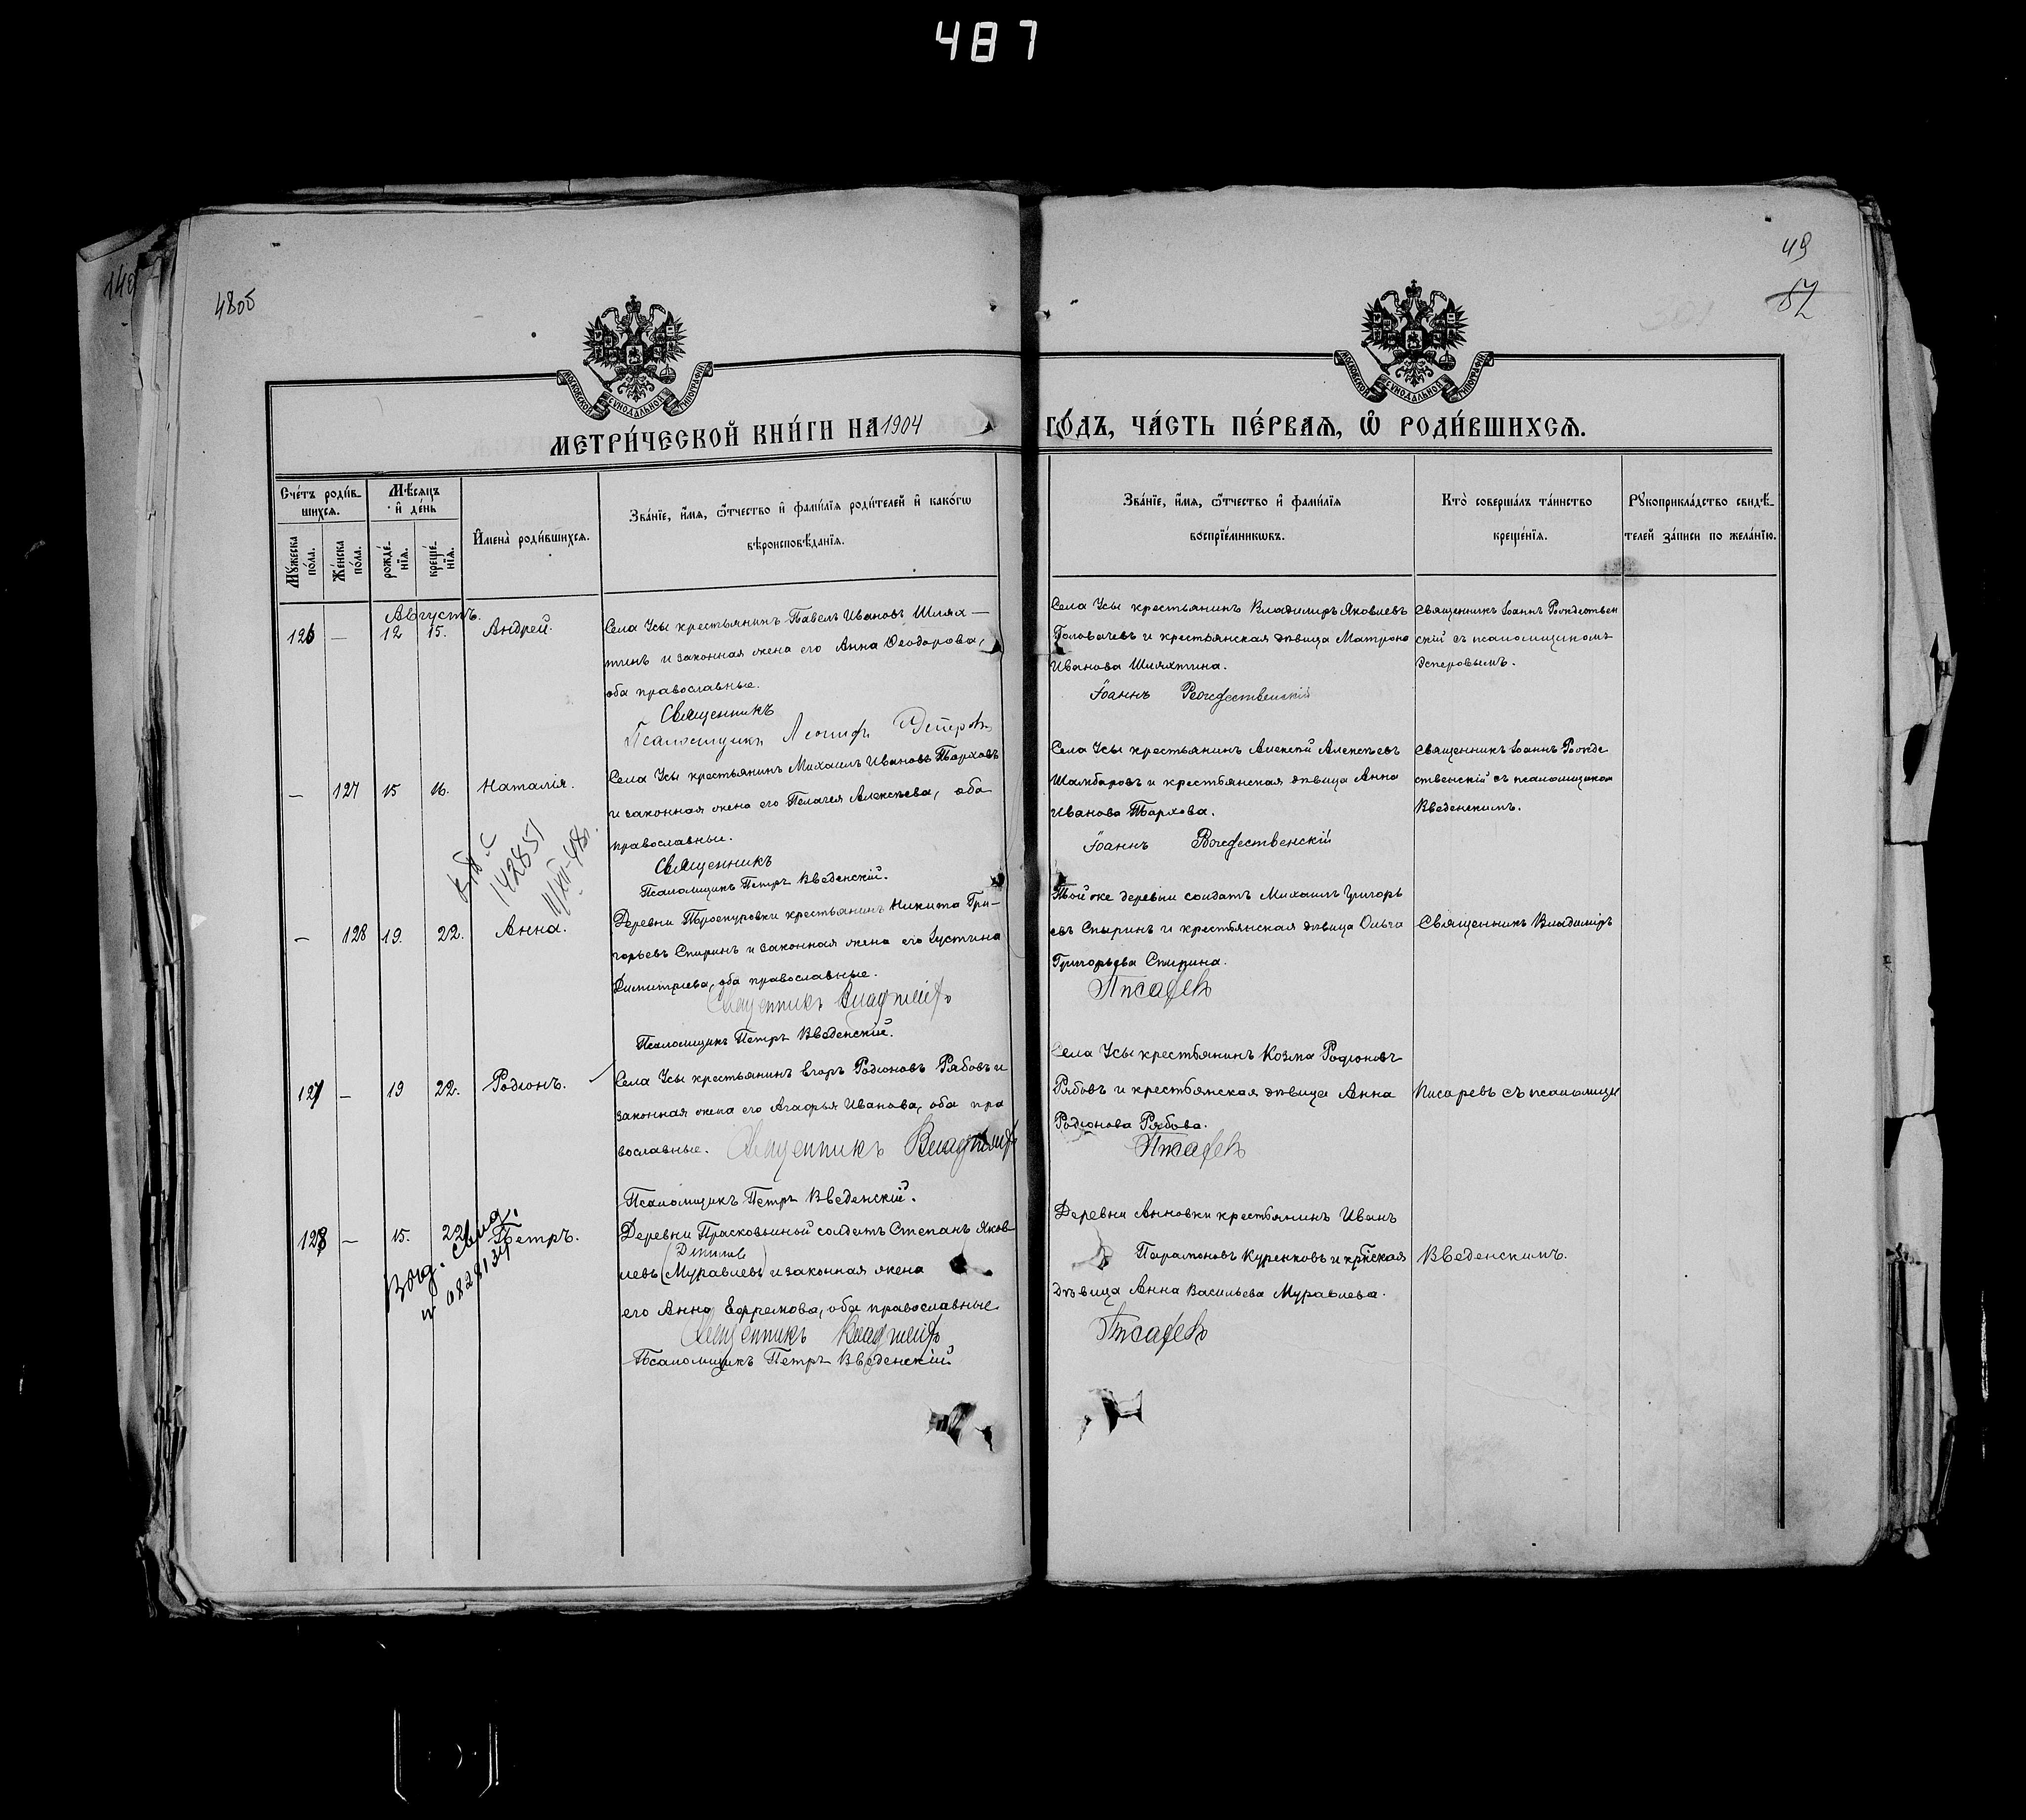 487
49
52
4805
МОСКОВСКОЙ СУНОДАЛЬНОЙ ТИПОГРАФІИ
МОСКОВСКОЙ СУНОДАЛЬНОЙ ТИПОГРАФІИ
МЕТРИ́ЧЕСКОЙ КНИ́ГИ НА 1904 ГО́ДЪ, ЧА́СТЬ ПЕ́РВАѦ, Ѽ РОДИ́ВШИХСѦ.
Сче́тъ роди́в-
шихсѧ.
Мѣ́сѧцъ
и҆ де́нь
Мꙋ́жеска по́ла.
Же́нска по́ла.
рожде́-
нїѧ.
креще́-
нїѧ.
И҆мена̀ роди́вшихсѧ.
Зва́нїе, и҆́мѧ, ѻ҆́тчество и҆ фами́лїѧ роди́телей и҆ како́гѡ
вѣроисповѣ́данїѧ.
Зва́нїе, и҆́мѧ, ѻ҆́тчество и҆ фами́лїѧ
воспрїе́мникѡвъ.
Кто̀ соверша́лъ та́инство
креще́нїѧ.
Рꙋкоприкла́дство свидѣ́-
телей за́писи по жела́нїю.
Августъ.
126 — 12 15. Андрей.
Села Усы крестьянинъ Павелъ Ивановъ Шлях—
тинъ и законная жена его Анна Ѳеодорова,
оба православные.
Священникъ
Псаломщикъ
Села Усы крестьянинъ Владимиръ Яковлевъ
Головачевъ и крестьянская дѣвица Матрона
Иванова Шляхтина.
Іоаннъ Рождественскій
Священникъ Іоаннъ Рождествен
скій съ псаломщикомъ
Эсперовымъ.
— 127 15 16. Наталія.
Села Усы крестьянинъ Михаилъ Ивановъ Тарховъ
и законная жена его Пелагея Алексѣева, оба
православные.
Священникъ
Псаломщикъ Петръ Введенскій.
Села Усы крестьянинъ Алексѣй Алексѣевъ
Шамбаровъ и крестьянская дѣвица Анна
Иванова Тархова.
Іоаннъ Рождественскій
Священникъ Іоаннъ Рожде
ственскій съ псаломщиком
Введенскимъ.
142851
— 128 19. 22. Анна.
Деревни крестьянинъ Никита Гри—
горьевъ Спиринъ и законная жена его Іустина
Димитріева, оба православные.
Священникъ Владиміръ
Псаломщикъ Петръ Введенскій.
Той же деревни солдатъ Михаилъ Григорь
евъ Спыринъ и крестьянская дѣвица Ольга
Григорьева Спирина.
Писаревъ
Священникъ Владиміръ
127 — 19 22. Родіонъ.
Села Усы крестьянинъ Егоръ Родіоновъ Рябовъ и
законная жена его Агафья Иванова, оба пра
вославные. Священникъ Владиміръ
Псаломщикъ Петръ Введенскій.
Села Усы крестьянинъ Козма Родіоновъ
Рябовъ и крестьянская дѣвица Анна
Родіонова Рябова.
Писаревъ
Писаревъ съ псаломщи
128 — 15. 22. Петръ.
Деревни Прасковьиной солдатъ Степанъ Яков
левъ (Муравлевъ) и законная жена
его Анна Ефремова, оба православные
Священникъ Владиміръ
Псаломщикъ Петръ Введенскій
Деревни Анновки крестьянинъ Иванъ
Парамоновъ Куренковъ и крнская
дѣвица Анна Васильева Муравлева.
Писаревъ
Введенскимъ.